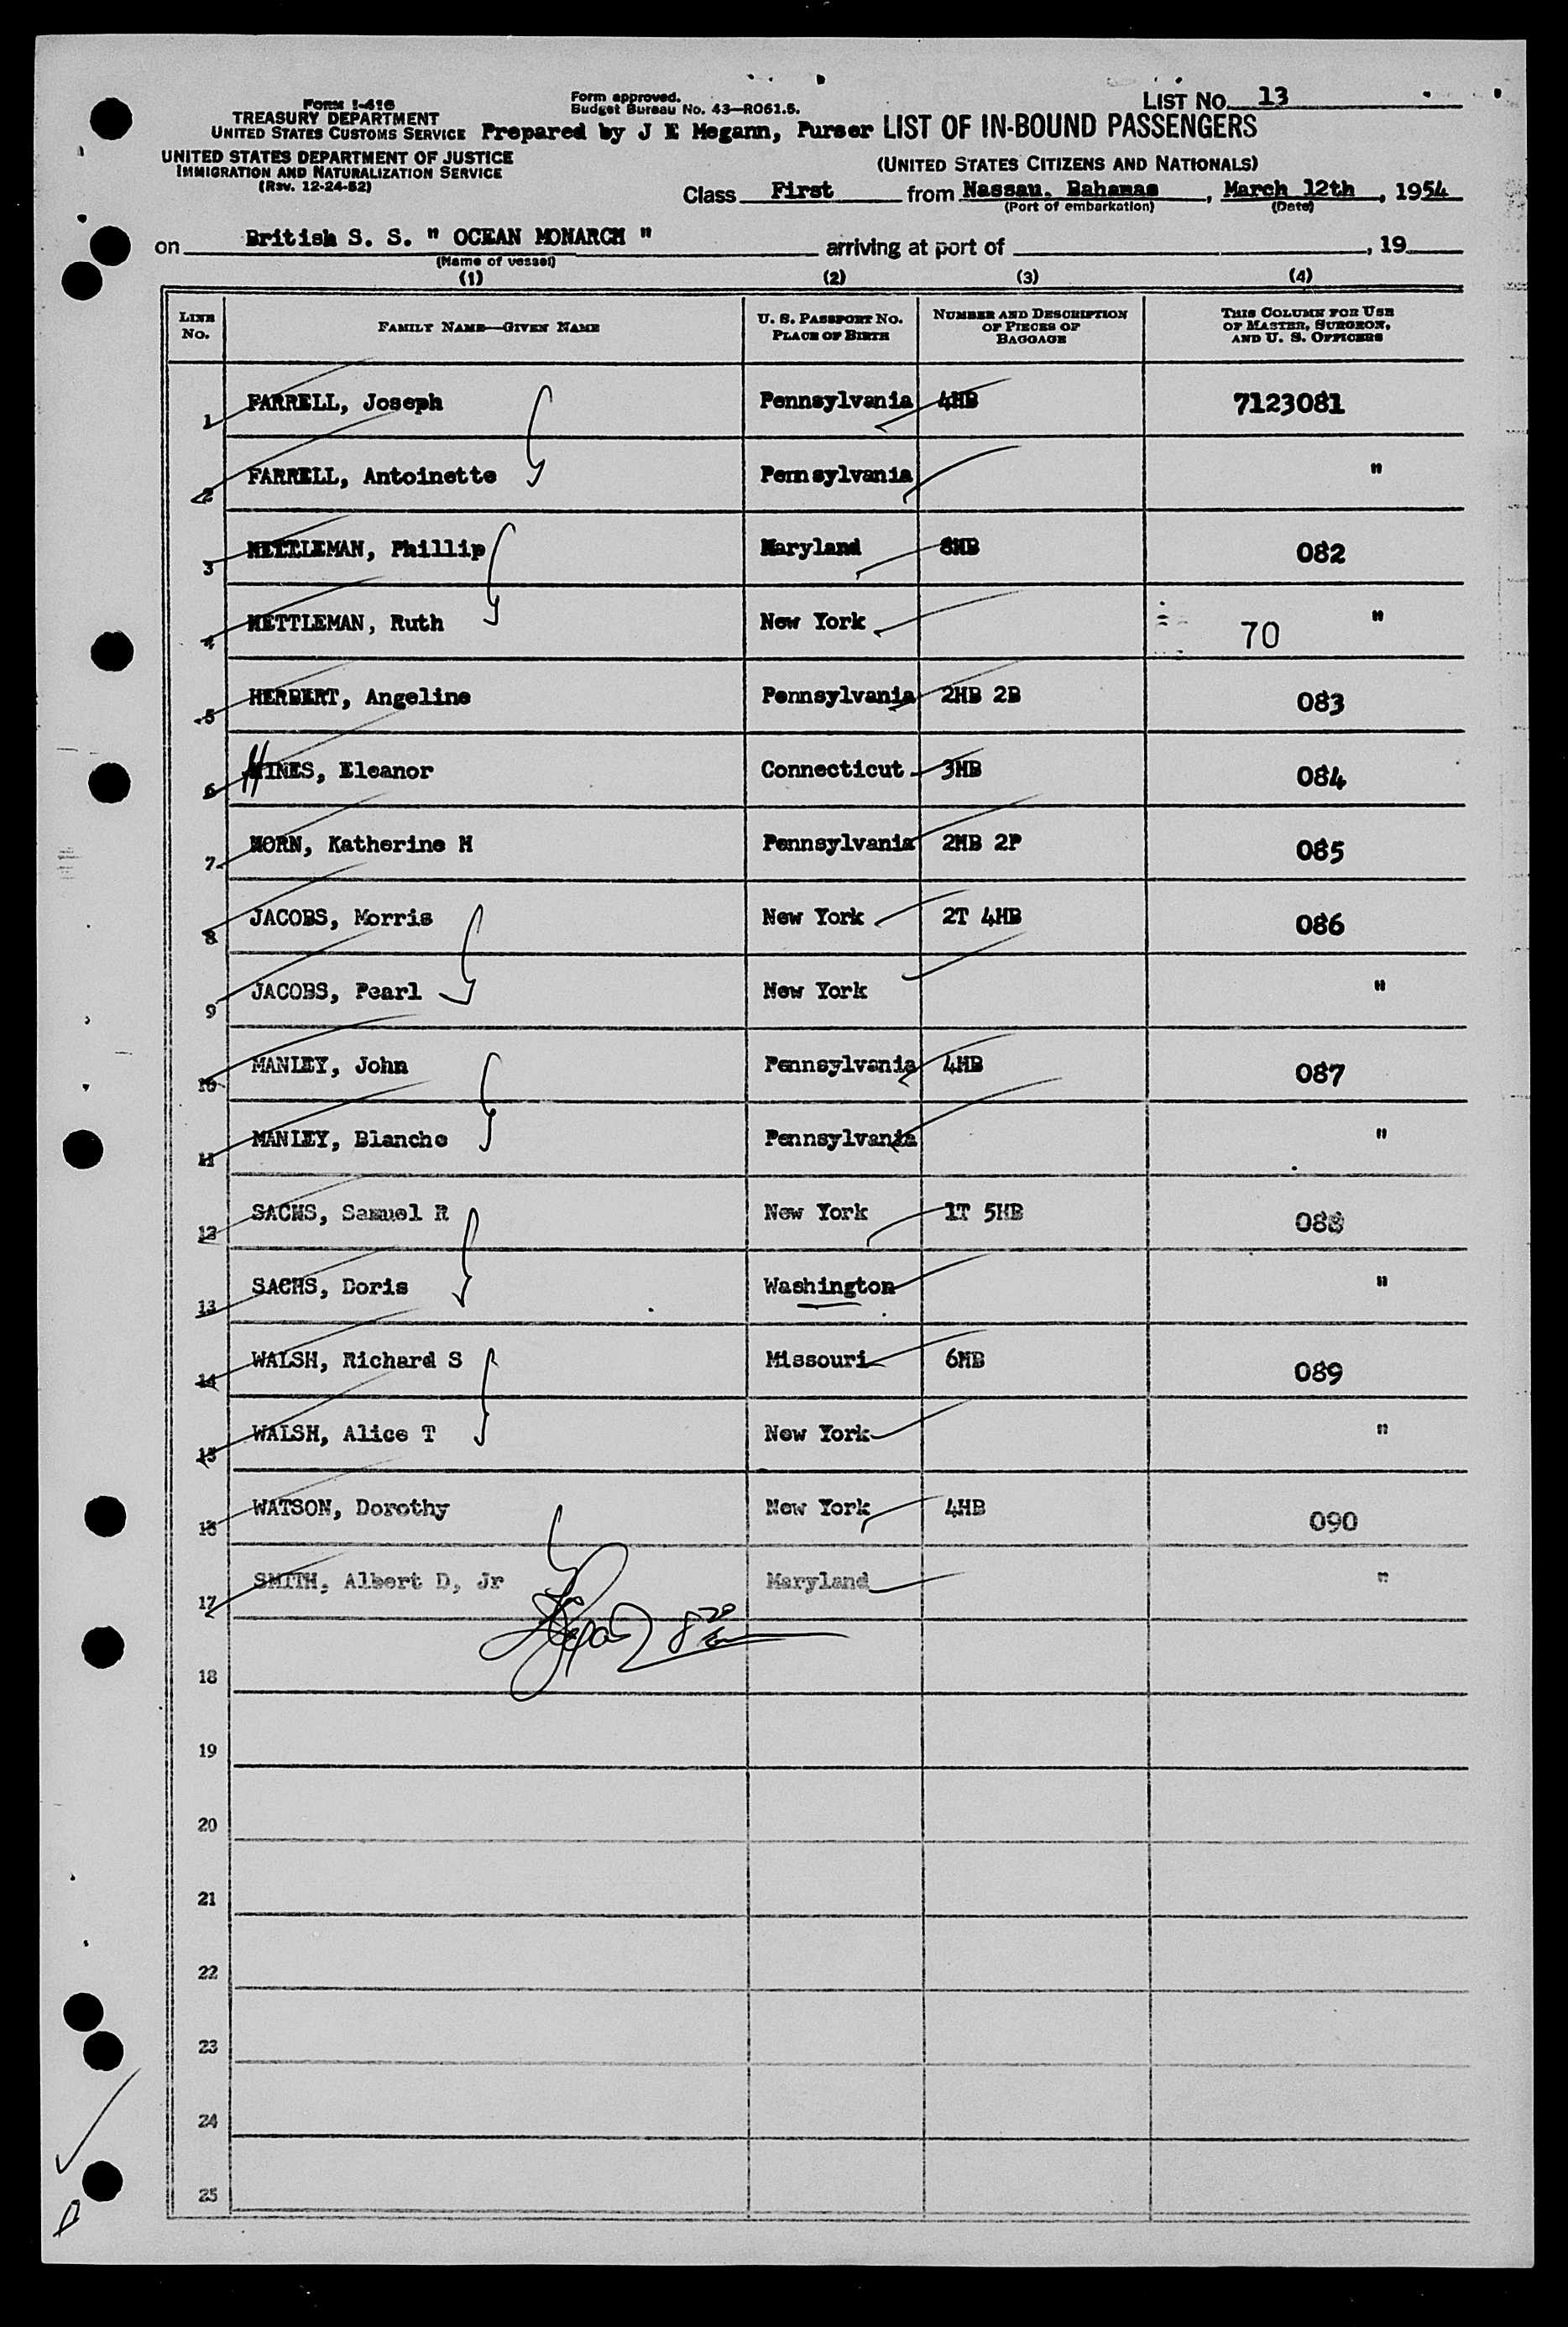 Form I-416
TREASURY DEPARTMENT
UNITED STATES CUSTOMS SERVICE
UNITED STATES DEPARTMENT OF JUSTICE
IMMIGRATION AND NATURALIZATION SERVICE
(Rev. 12-24-52)
Form approved.
Budget Bureau No. 43—R061.5.
Prepared by J E Megann, Purser
LIST NO. 13
LIST OF IN-BOUND PASSENGERS
(UNITED STATES CITIZENS AND NATIONALS)
Class First from Nassau, Bahamas, March 12th, 1954
(Port of embarkation) (Date)
on British S. S. " OCEAN MONARCH " arriving at port of , 19
(Name of vessel)
(1) (2) (3) (4)
LINE No. FAMILY NAME—GIVEN NAME U. S. PASSPORT NO. PLACE OF BIRTH NUMBER AND DESCRIPTION OF PIECES OF BAGGAGE THIS COLUMN FOR USE OF MASTER, SURGEON, AND U. S. OFFICERS
1 FARRELL, Joseph Pennsylvania 4HB 7123081
2 FARRELL, Antoinette Pennsylvania "
3 METTLEMAN, Phillip Maryland 8HB 082
4 METTLEMAN, Ruth New York 70 "
5 HERBERT, Angeline Pennsylvania 2HB 2B 083
6 HINES, Eleanor Connecticut 3HB 084
7 HORN, Katherine M Pennsylvania 2HB 2P 085
8 JACOBS, Morris New York 2T 4HB 086
9 JACOBS, Pearl New York "
10 MANLEY, John Pennsylvania 4HB 087
11 MANLEY, Blanche Pennsylvania "
12 SACHS, Samuel R New York 1T 5HB 088
13 SACHS, Doris Washington "
14 WALSH, Richard S Missouri 6HB 089
15 WALSH, Alice T New York "
16 WATSON, Dorothy New York 4HB 090
17 SMITH, Albert D, Jr Maryland "
18
19
20
21
22
23
24
25